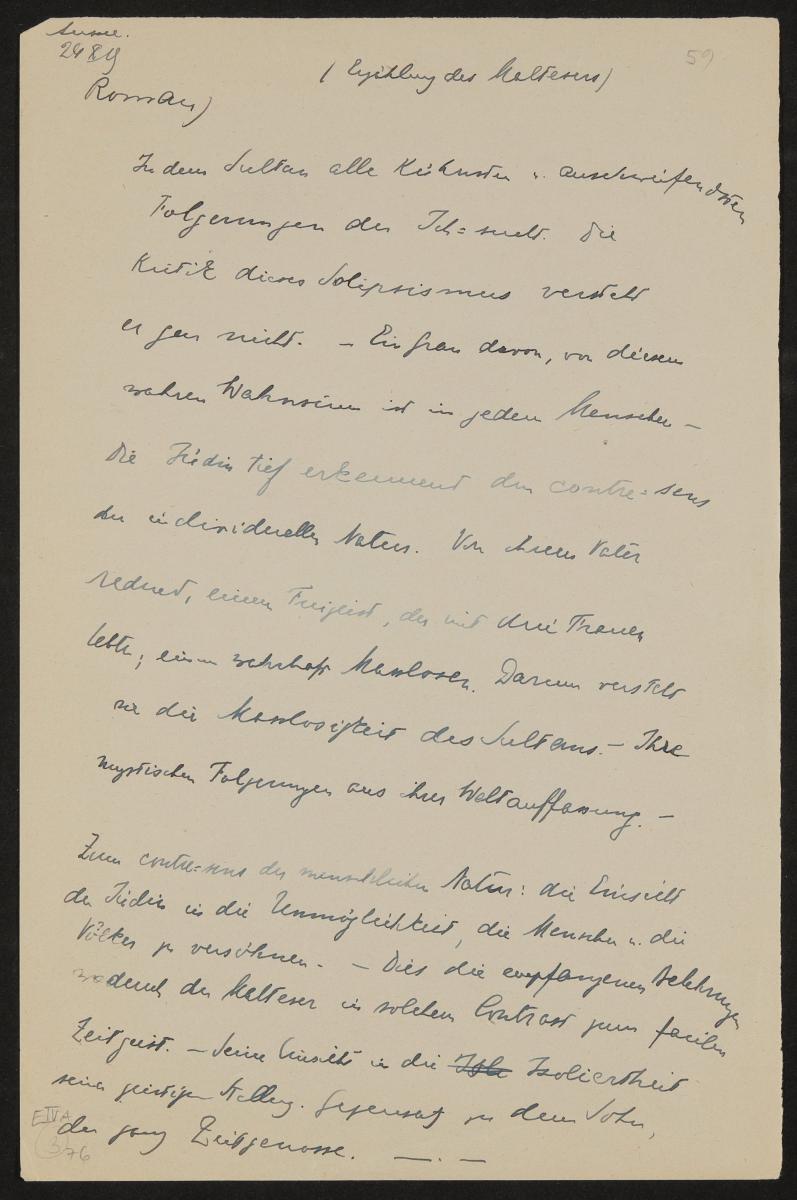 Aussee.
24 X 19
59
(Erzählung des Maltesers)
Roman)
In dem Sultan alle kühnsten u. ausschweifendsten
Folgerungen der Ich=sucht. Die
Kritik dieses Solipsismus versteht
er gar nicht. – Ein Gran davon, von diesem
wahren Wahnsinn ist in jedem Menschen –
Die Jüdin tief erkennend den contre=sens
der individuellen Natur. Von ihrem Vater
redend, einem Freigeist, der mit drei Frauen
lebte; einem wahrhaft Masslosen. Darum versteht
sie die Masslosigkeit des Sultans. – Ihre
mystischen Folgerungen aus ihrer Weltauffassung. –
Zum contre=sens der menschlichen Natur: die Einsicht
der Jüdin in die Unmöglichkeit, die Menschen u. die
Völker zu versöhnen. – – Dies die empfangenen Belehrungen
wodurch der Malteser in solchem Contrast zum facilen
Zeitgeist. – Seine Einsicht in die Isoliertheit
seiner geistigen Stellung. Gegensatz zu dem Sohn,
der ganz Zeitgenosse. —.—
E IV A
3
76